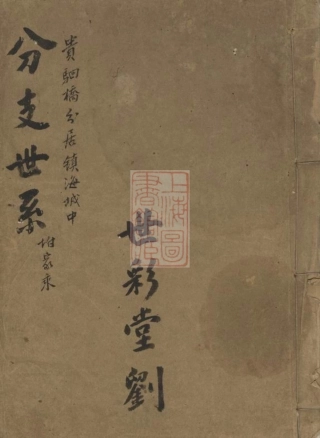 世彩堂劉
貴駟橋分居鎮海城中
分支世系
堆家來
上海圖
書館藏